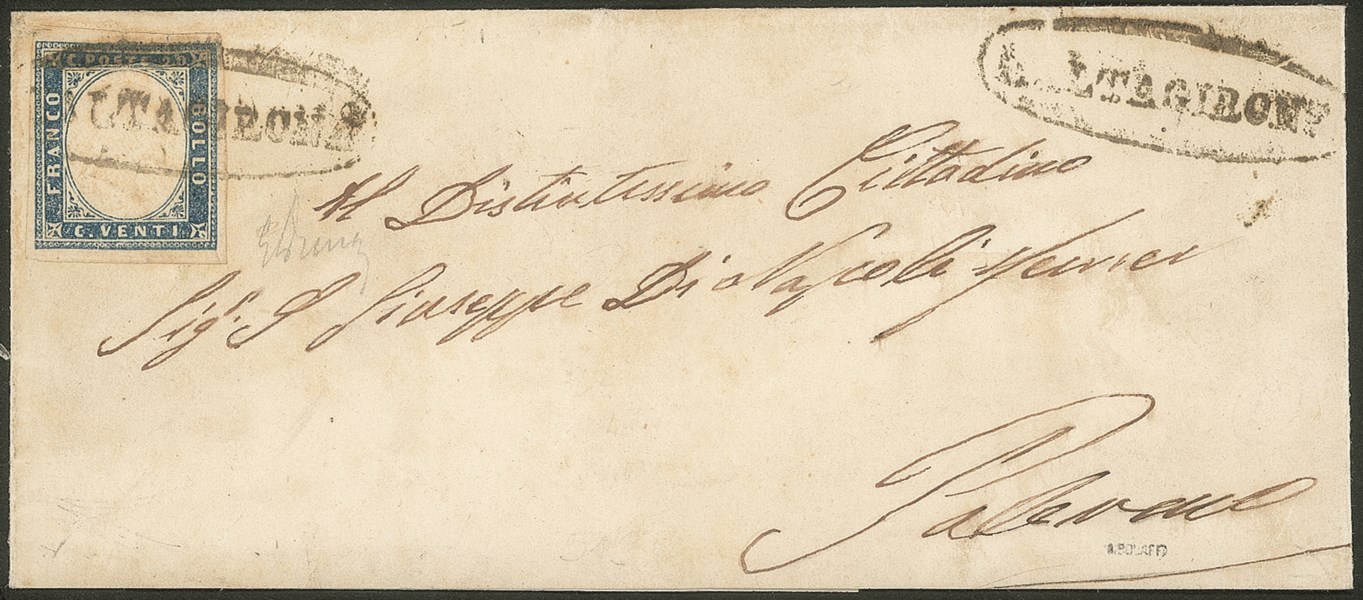 C. POSTE 20
FRANCO
BOLLO
C. VENTI
LTAGIRONE
LTAGIRONE
Al Distintissimo Cittadino
Sigr. D Giuseppe Di Napoli
Palermo
A. BOLAFFI